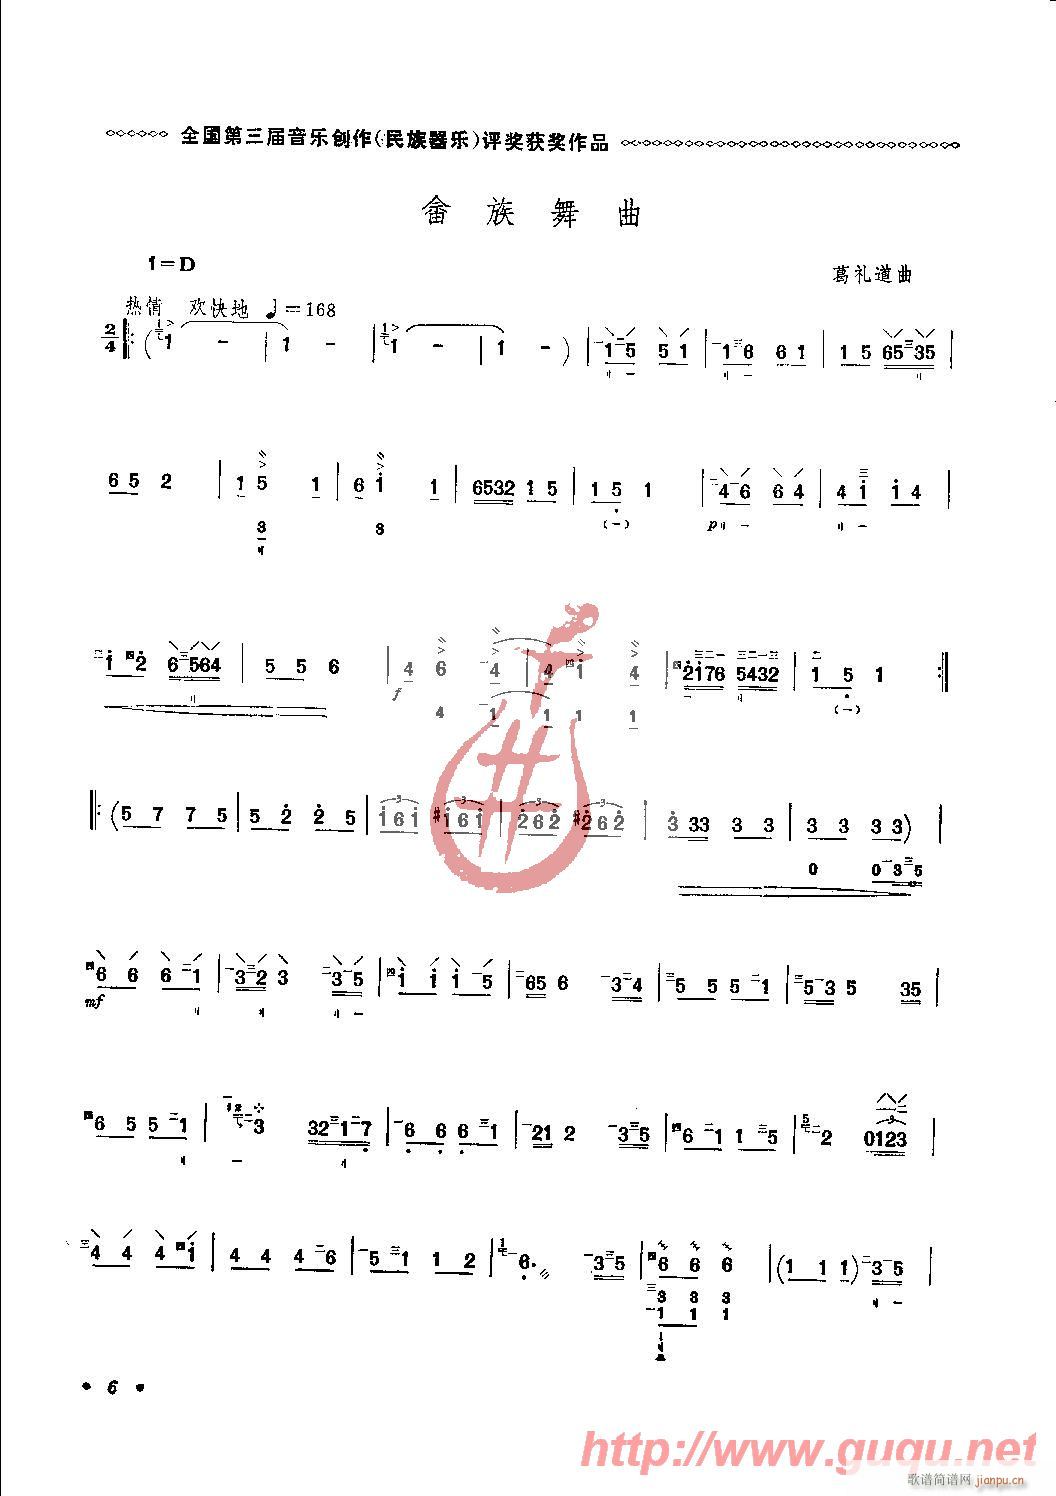 全国第三届音乐创作(民族器乐)评奖获奖作品
畲族舞曲
1=D
葛礼道曲
热情 欢快地 ♩=168
2/4
1 - | 1 - | 1 - | 1 - ) | 1 5 5 1 | 1 6 6 1 | 1 5 6535 |
6 5 2 | 1 5 1 | 6 i 1 | 6532 1 5 | 1 5 1 | 4 6 6 4 | 4 i i 4 |
3 3 (一) p
i 2 6564 | 5 5 6 | 4 6 4 | 4 i 4 | 2176 5432 | 1 5 1 :|
f 4 1 1 1 1 (一)
(5 7 7 5 | 5 2 2 5 | i6i #i6i | 262 #262 | 3 33 3 3 | 3 3 3 3) |
0 0 3 5
6 6 6 1 | 3 2 3 3 5 | i i i 5 | 65 6 3 4 | 5 5 5 1 | 5 3 5 35 |
mf
6 5 5 1 | 3 32 1 7 | 6 6 6 1 | 21 2 3 5 | 6 1 1 5 | 2 0123 |
4 4 4 i | 4 4 4 6 | 5 1 1 2 | 6. 3 5 | 6 6 6 | (1 1 1) 3 5 |
3 3 3
1 1 1
• 6 •
http://www.guqu.net
歌谱简谱网 jianpu.cn